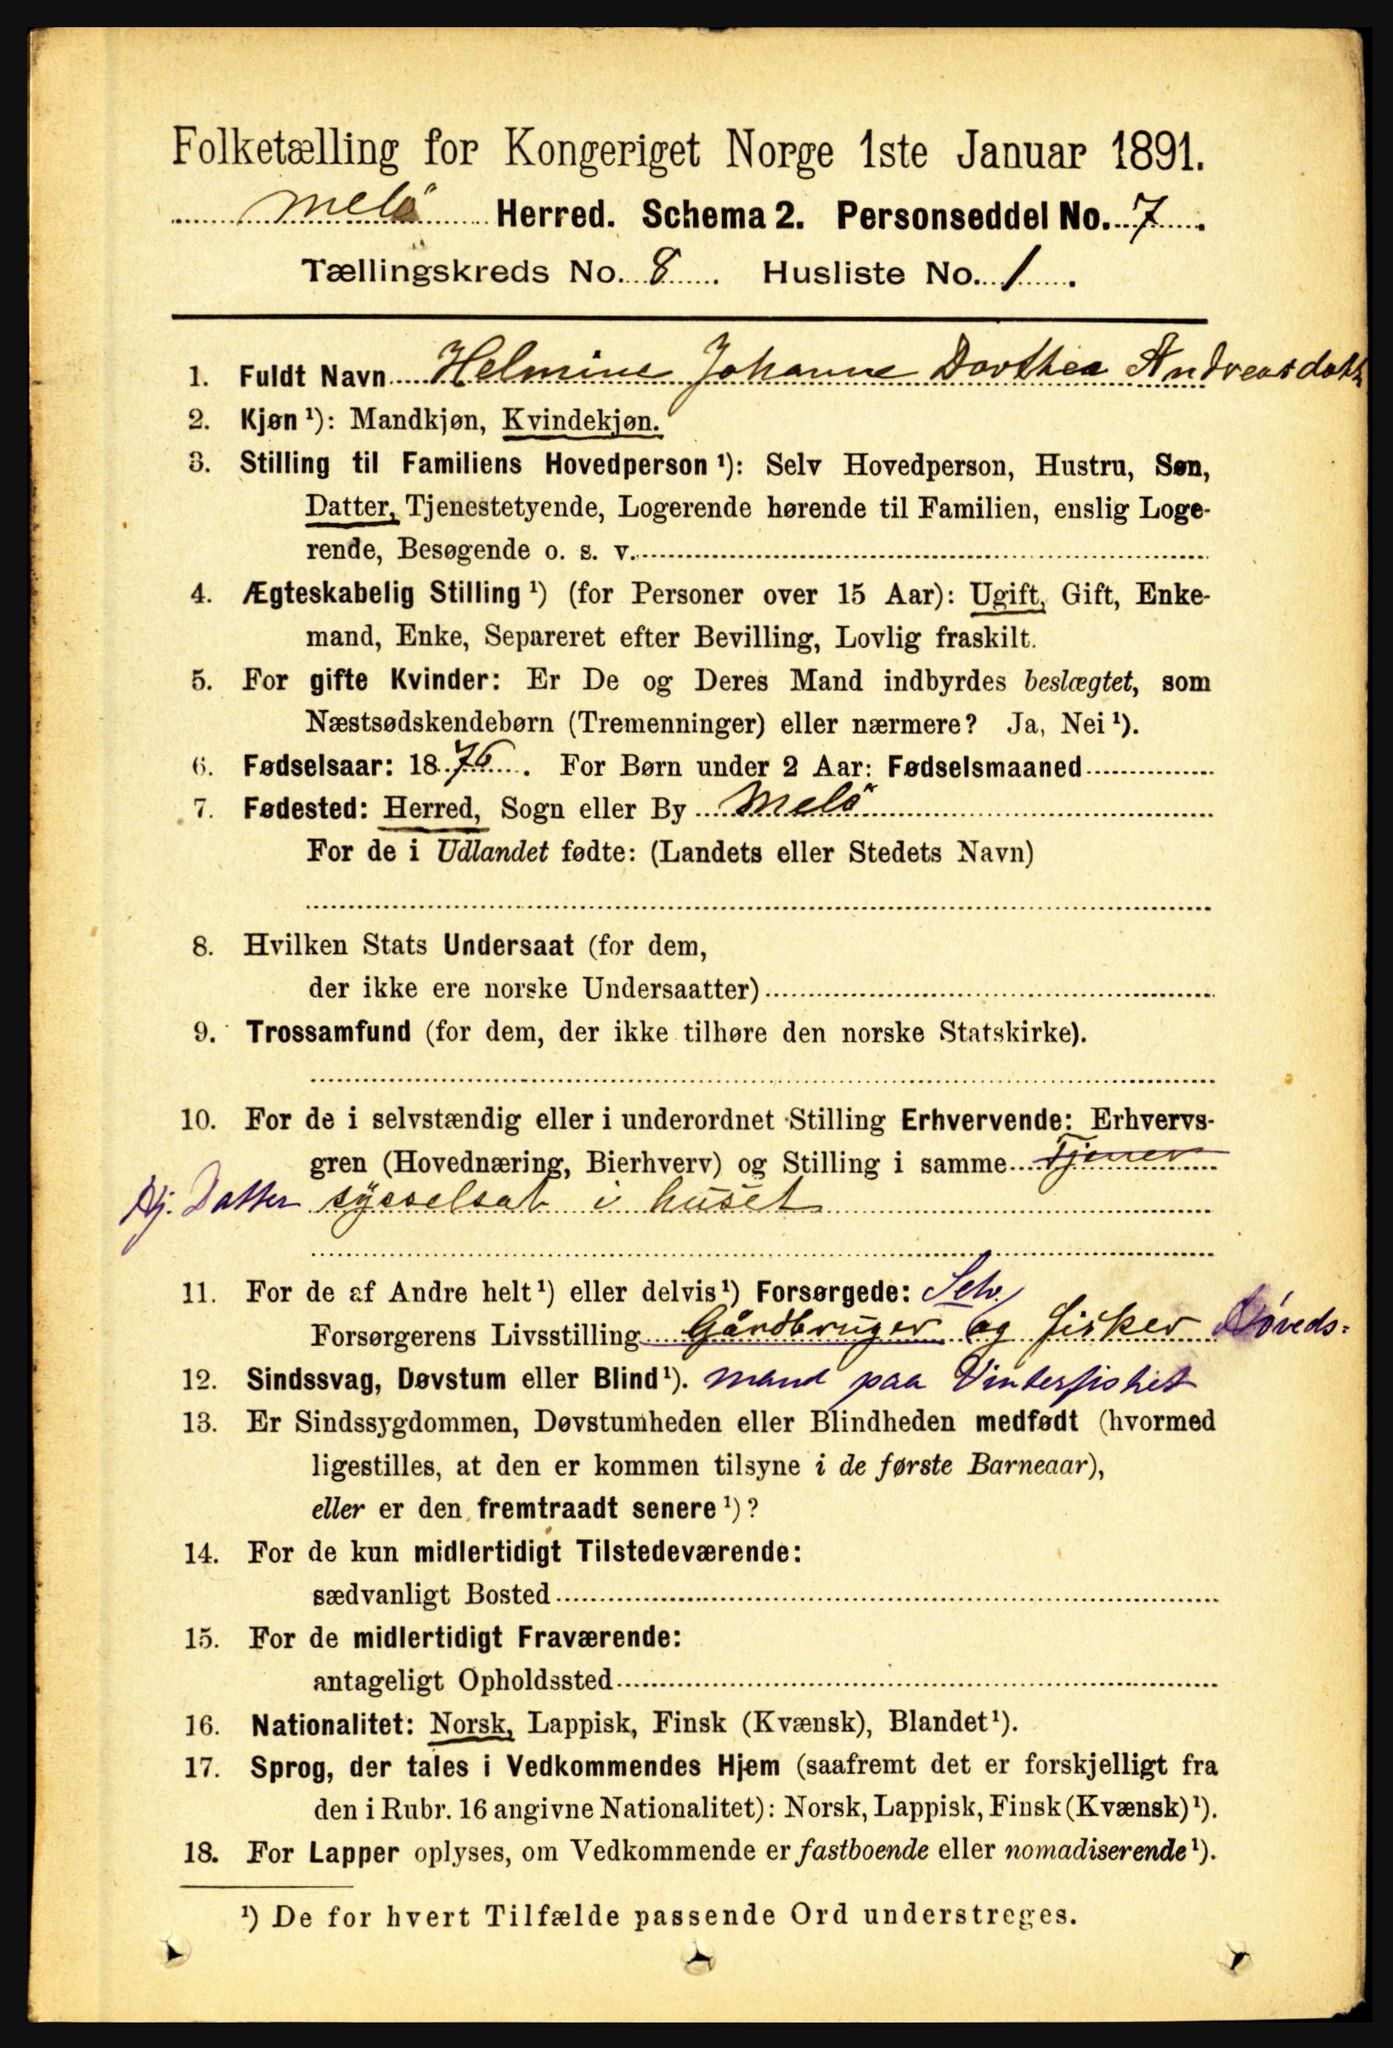 Folketælling for Kongeriget Norge 1ste Januar 1891.
Melö Herred. Schema 2. Personseddel No. 7.
Tællingskreds No. 8. Husliste No. 1.
1. Fuldt Navn Helmine Johanne Dorthea Andreasdatt
2. Kjøn ¹): Mandkjøn, Kvindekjøn.
3. Stilling til Familiens Hovedperson ¹): Selv Hovedperson, Hustru, Søn,
Datter, Tjenestetyende, Logerende hørende til Familien, enslig Loge-
rende, Besøgende o. s. v.
4. Ægteskabelig Stilling ¹) (for Personer over 15 Aar): Ugift, Gift, Enke-
mand, Enke, Separeret efter Bevilling, Lovlig fraskilt.
5. For gifte Kvinder: Er De og Deres Mand indbyrdes beslægtet, som
Næstsødskendebørn (Tremenninger) eller nærmere? Ja, Nei ¹).
6. Fødselsaar: 1876. For Børn under 2 Aar: Fødselsmaaned
7. Fødested: Herred, Sogn eller By Melö
For de i Udlandet fødte: (Landets eller Stedets Navn)
8. Hvilken Stats Undersaat (for dem,
der ikke ere norske Undersaatter)
9. Trossamfund (for dem, der ikke tilhøre den norske Statskirke).
10. For de i selvstændig eller i underordnet Stilling Erhvervende: Erhvervs-
gren (Hovednæring, Bierhverv) og Stilling i samme Tjener
Hj. Datter sysselsat i huset
11. For de af Andre helt ¹) eller delvis ¹) Forsørgede: Selv.
Forsørgerens Livsstilling Gårdbruger og fisker Høveds=
12. Sindssvag, Døvstum eller Blind ¹). mand paa Vinterfisket
13. Er Sindssygdommen, Døvstumheden eller Blindheden medfødt (hvormed
ligestilles, at den er kommen tilsyne i de første Barneaar),
eller er den fremtraadt senere ¹)?
14. For de kun midlertidigt Tilstedeværende:
sædvanligt Bosted
15. For de midlertidigt Fraværende:
antageligt Opholdssted
16. Nationalitet: Norsk, Lappisk, Finsk (Kvænsk), Blandet ¹).
17. Sprog, der tales i Vedkommendes Hjem (saafremt det er forskjelligt fra
den i Rubr. 16 angivne Nationalitet): Norsk, Lappisk, Finsk (Kvænsk) ¹).
18. For Lapper oplyses, om Vedkommende er fastboende eller nomadiserende ¹).
¹) De for hvert Tilfælde passende Ord understreges.